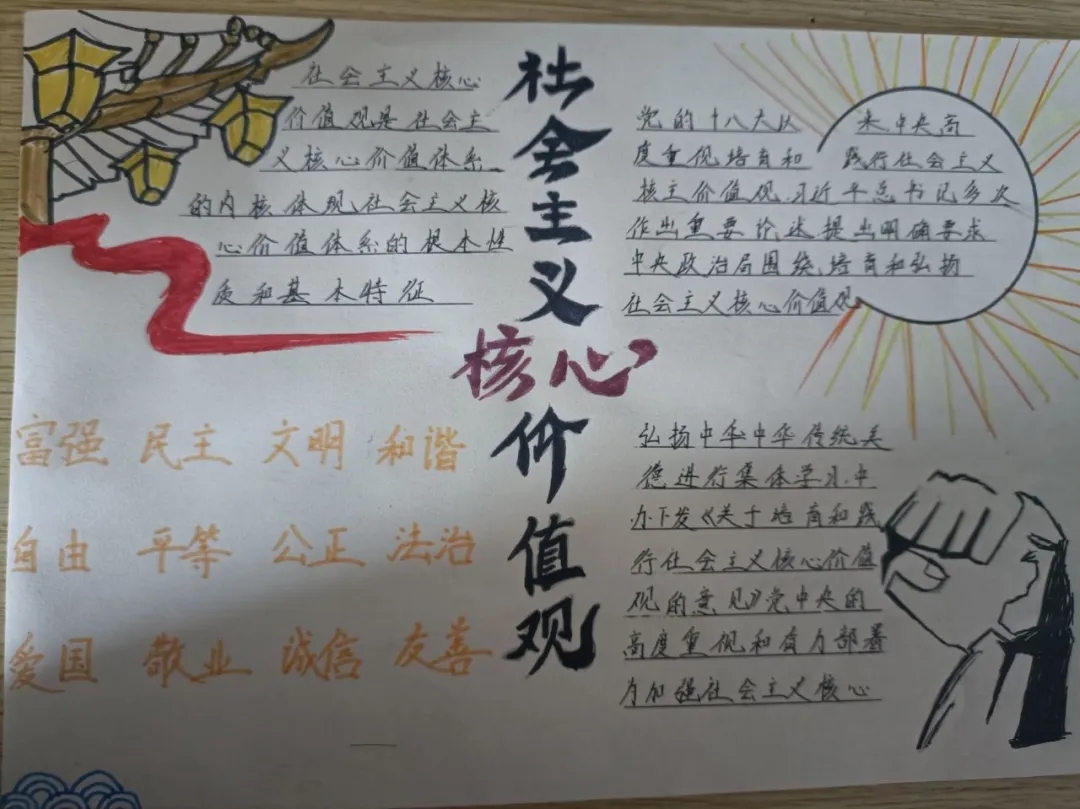 社会主义核心价值观
社会主义核心
价值观是社会主
义核心价值体系
的内核体现社会主义核
心价值体系的根本性
质和基本特征
党的十八大以来中央高
度重视培育和践行社会主义
核主价值观.习近平总书记多次
作出重要论述提出明确要求
中央政治局围绕培育和弘扬
社会主义核心价值观
富强 民主 文明 和谐
自由 平等 公正 法治
爱国 敬业 诚信 友善
弘扬中华中华传统美
德进行集体学习.中
办下发《关于培育和践
行社会主义核心价值
观的意见》党中央的
高度重视和有力部署
为加强社会主义核心